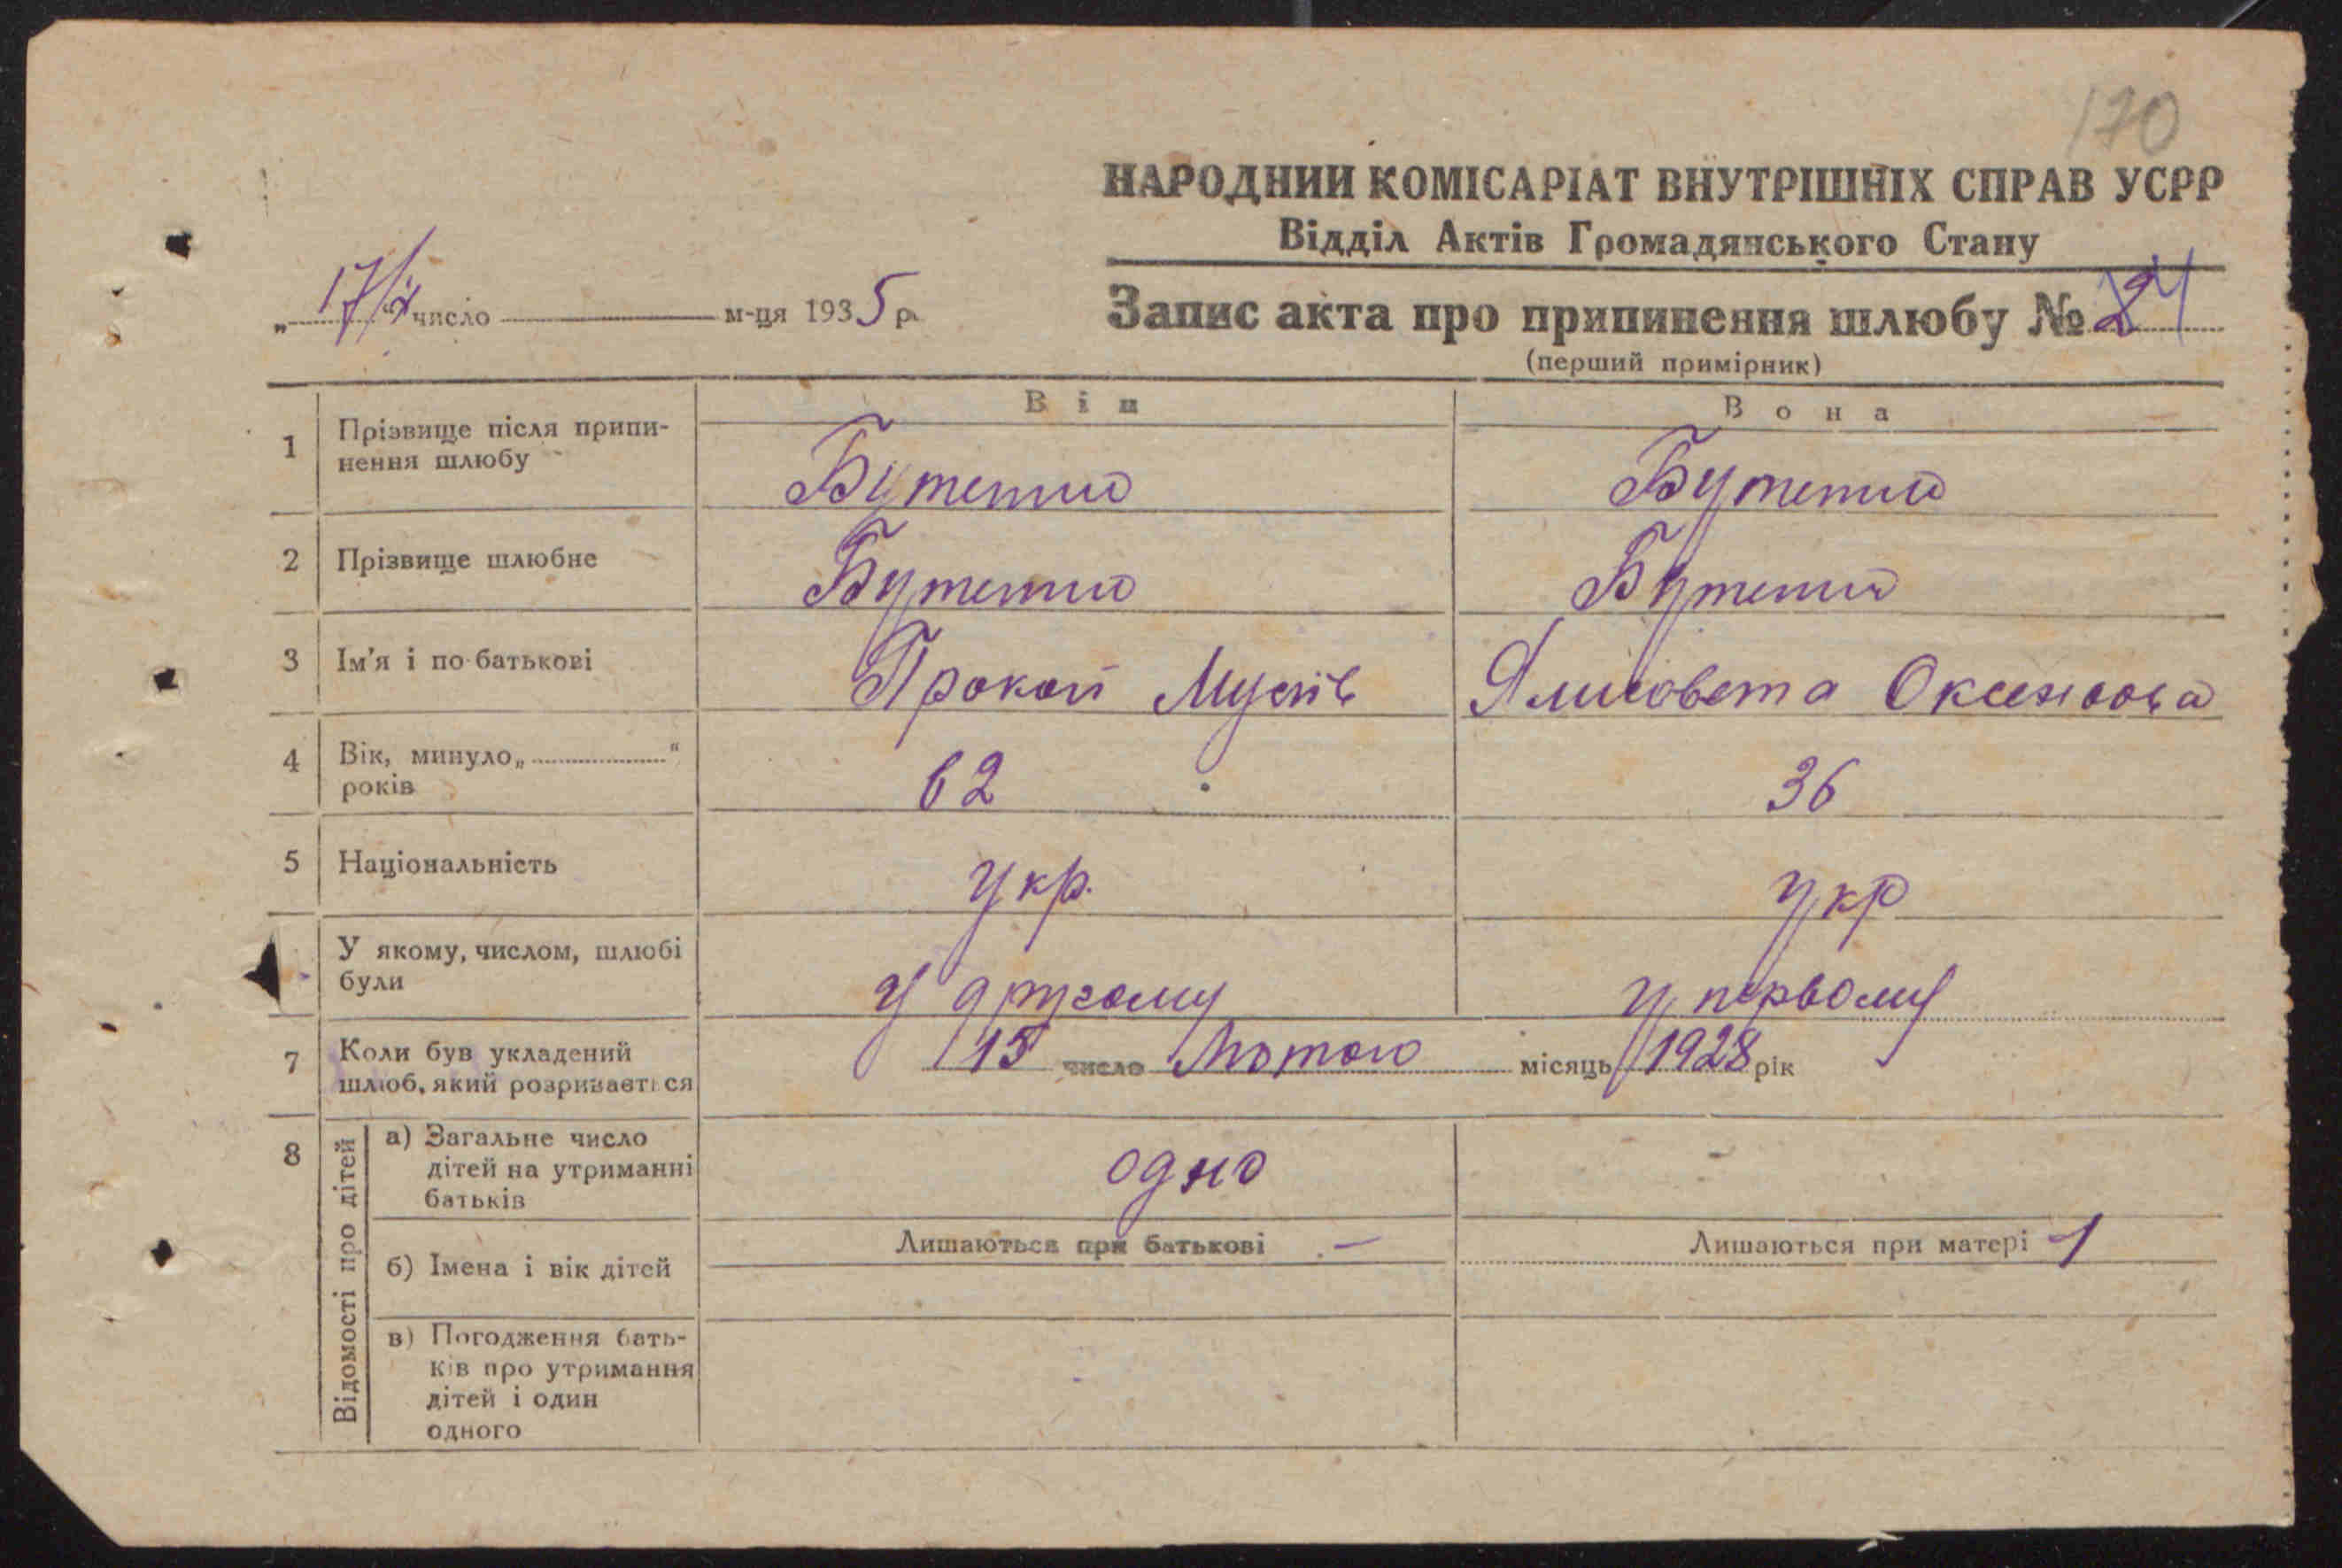 170
НАРОДНИЙ КОМІСАРІАТ ВНУТРІШНІХ СПРАВ УСРР
Відділ Актів Громадянського Стану
„17/X“ число м-ця 1935 р.
Запис акта про припинення шлюбу № 24
(перший примірник)
Він Вона
1 Прізвище після припи-
нення шлюбу
Бутенко Бутенко
2 Прізвище шлюбне Бутенко Бутенко
3 Ім'я і по-батькові Прокоп Мусіїв Ялисовета Оксентова
4 Вік, минуло „ “
років
62 36
5 Національність Укр. Укр
У якому, числом, шлюбі
були
У другому У первому
7 Коли був укладений
шлюб, який розривається
15 число Лютого місяць 1928 рік
8 Відомості про дітей
а) Загальне число
дітей на утриманні
батьків
одно -
б) Імена і вік дітей
Лишаються при батькові - Лишаються при матері 1
в) Погодження бать-
ків про утримання
дітей і один
одного